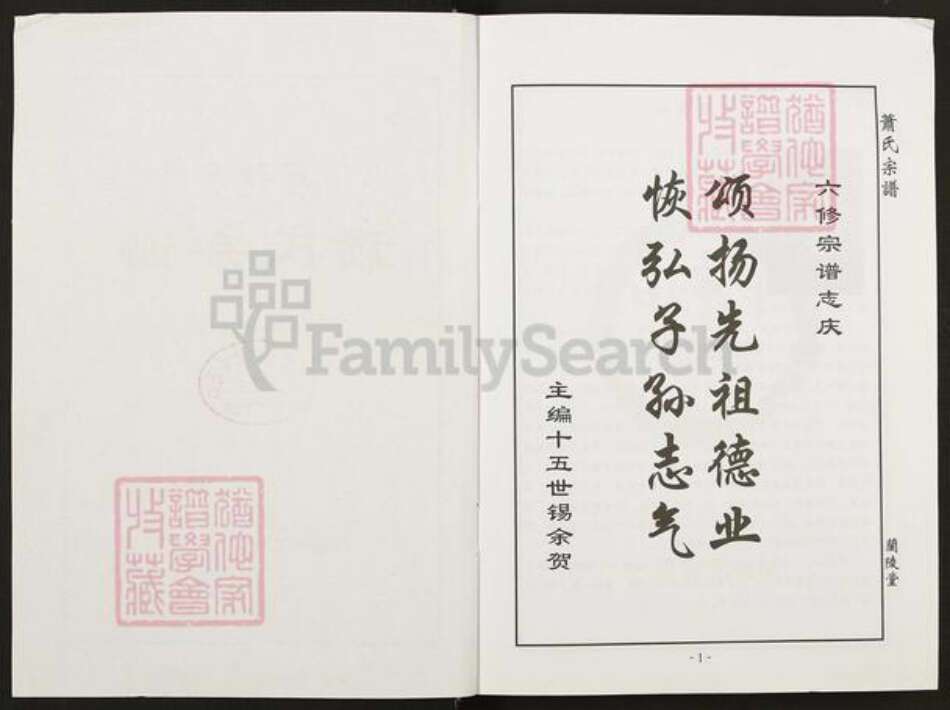 萧氏宗譜
六修宗谱志庆
颂扬先祖德业
恢弘子孙志气
主编十五世锡余贺
蘭陵堂
- 1 -
猶他家
譜學會
收藏
猶他家
譜學會
收藏
FamilySearch